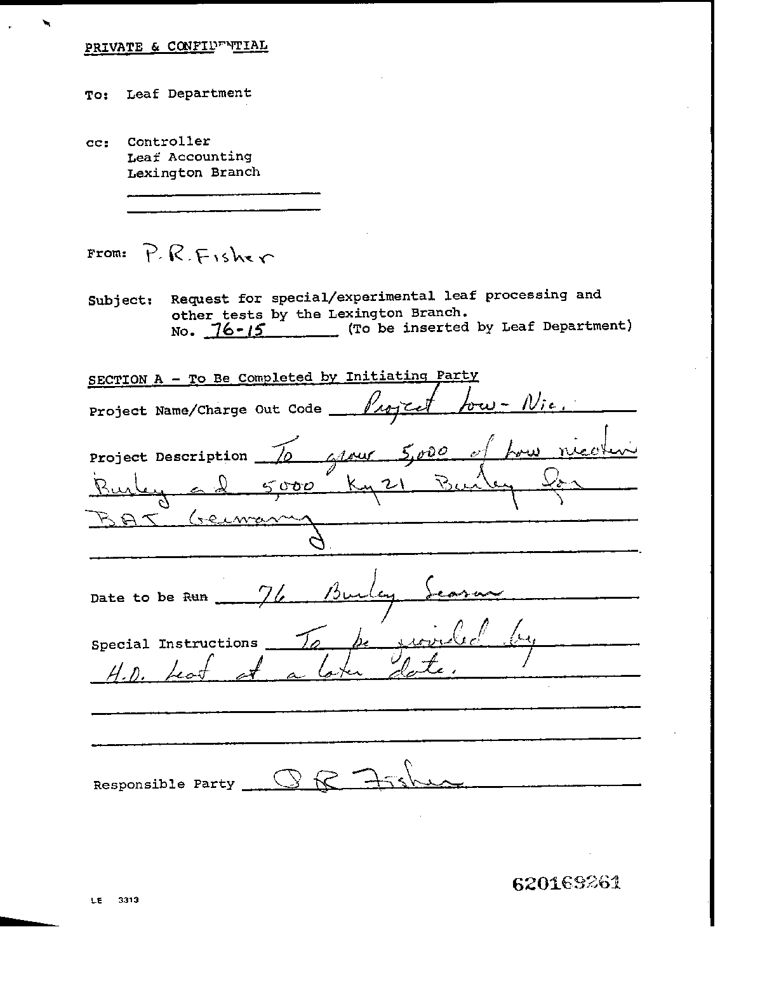 PRIVATE & CONFIDENTIAL
To: Leaf Department
cc: Controller
Leaf Accounting
Lexington Branch
From: P.R. Fisher
Subject: Request for special/experimental leaf processing and
other tests by the Lexington Branch.
No. 76-15 (To be inserted by Leaf Department)
SECTION A - To Be Completed by Initiating Party
Project Name/Charge Out Code Project Low-Nic.
Project Description To grow 5,000 of low nicotine
Burley and 5000 Ky 21 Burley for
BAT Germany
Date to be Run 76 Burley Season
Special Instructions To be provided by
H.D. Leaf at a later date.
Responsible Party P R Fisher
620169261
LE 3313